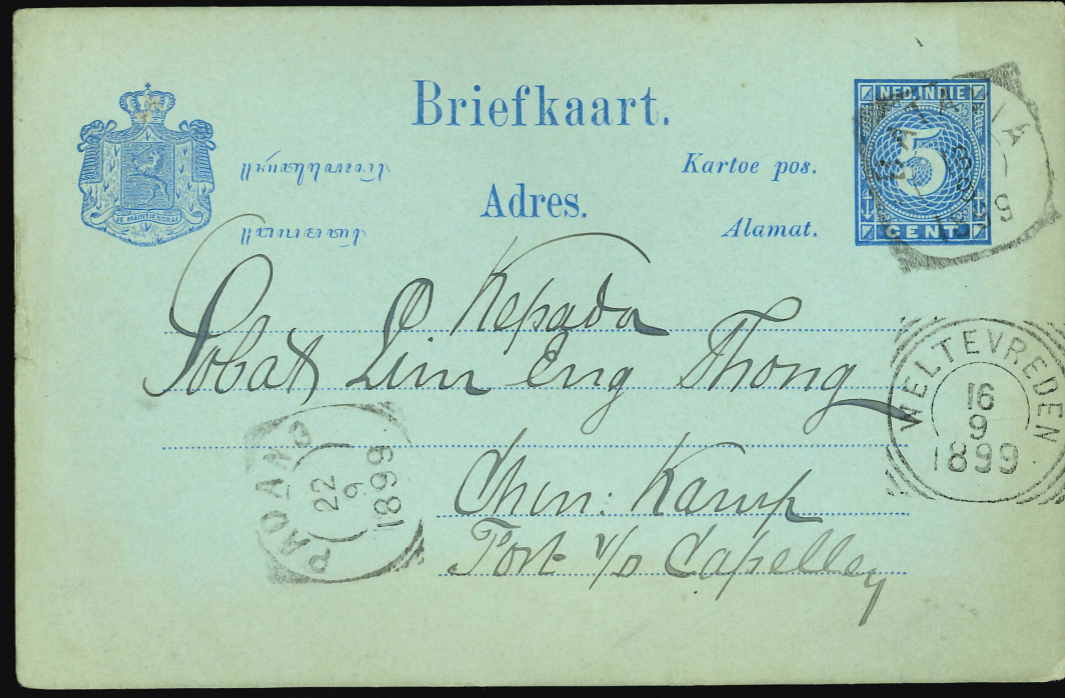 Briefkaart.
Kartoe pos.
Adres.
Alamat.
JE MAINTIENDRAI
NED. INDIE
5
CENT
BATAVIA
1899
Kepada
Sobat Lim Eng Thong
Chin: Kamp
Fort v/d Capellen
WELTEVREDEN
16
9
1899
PADANG
22
9
1899